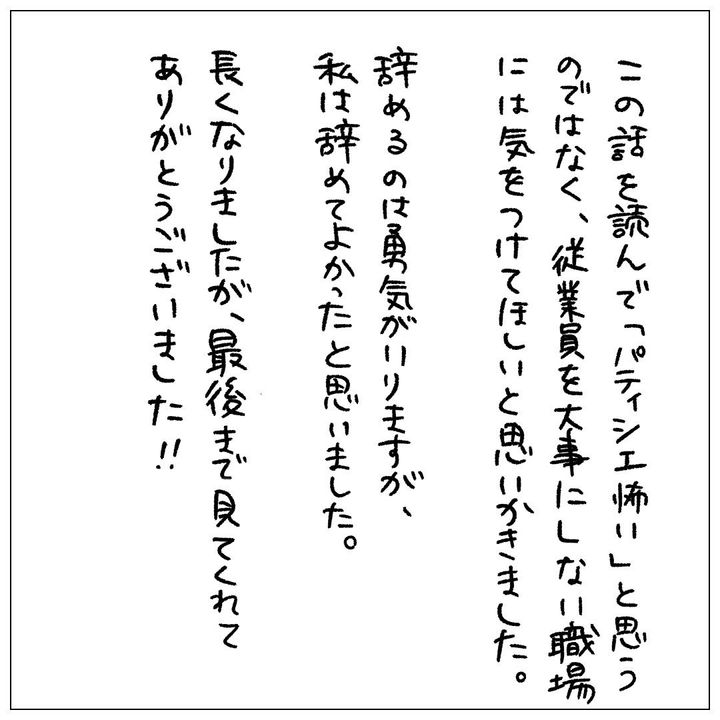 この話を読んで「パティシエ怖い」と思う
のではなく、従業員を大事にしない職場
には気をつけてほしいと思いかきました。
辞めるのは勇気がいりますが、
私は辞めてよかったと思いました。
長くなりましたが、最後まで見てくれて
ありがとうございました!!